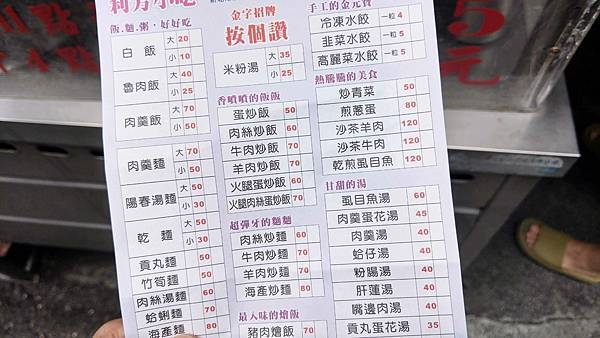 飯.麵.粥,好好吃
白飯 大 20
小 10
魯肉飯 大 40
小 25
肉羹飯 大 70
小 50
肉羹麵 大 70
小 50
陽春湯麵 大 50
小 30
乾麵 大 50
小 30
貢丸麵 50
竹筍麵 50
肉絲湯麵 60
蛤蜊麵 70
海產麵 80
金字招牌
按個讚
米粉湯 大 35
小 25
香噴噴的飯飯
蛋炒飯 50
肉絲炒飯 60
牛肉炒飯 70
羊肉炒飯 70
火腿蛋炒飯 60
火腿肉絲蛋炒飯 70
超彈牙的麵麵
肉絲炒麵 60
牛肉炒麵 70
羊肉炒麵 70
海產炒麵 80
最入味的燴飯
豬肉燴飯 70
手工的金元寶
冷凍水餃 一粒 4
韭菜水餃 一粒 5
高麗菜水餃 一粒 5
熱騰騰的美食
炒青菜 50
煎蔥蛋 80
沙茶羊肉 120
沙茶牛肉 120
乾煎虱目魚 120
甘甜的湯
虱目魚湯 60
肉羹蛋花湯 45
肉羹湯 40
蛤仔湯 40
粉腸湯 40
肝蓮湯 40
嘴邊肉湯 40
貢丸蛋花湯 35